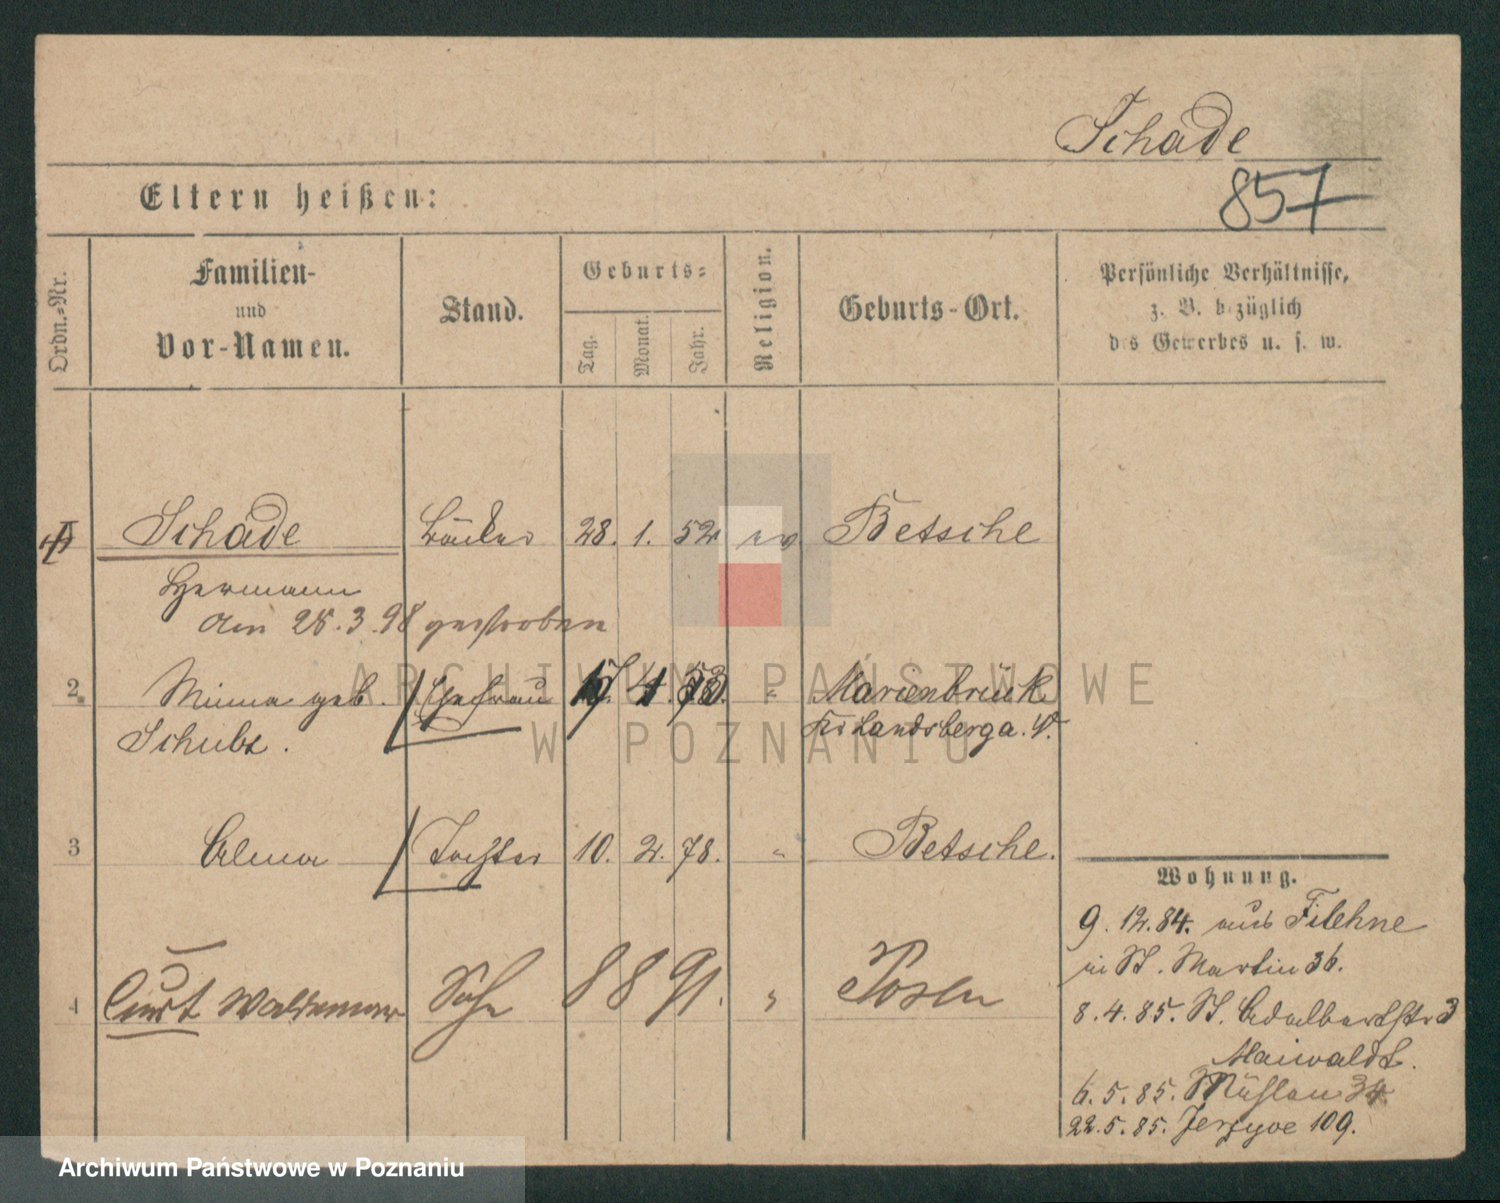 Schade
857
Eltern heißen:
Ordn.-Nr.
Familien-
und
Vor-Namen.
Stand.
Geburts-
Tag.
Monat.
Jahr.
Religion.
Geburts-Ort.
Persönliche Verhältnisse,
z. B. bezüglich
des Gewerbes u. s. w.
Schade Bäcker 28. 1. 52 ev Betsche
Hermann
am 28.3.98 gestorben
2. Minna geb. Ehefrau 17. 4. 53. " Marienbrück
Schulz. Kr Landsberg a. W.
3 Alma Tochter 10. 2. 78. " Betsche.
4 Curt Waldemar Sohn 8 8 91. " Posen
Wohnung.
9.12.84. aus Filehne
in St. Martin 36.
8.4.85. St. Adalbertstr 3
Maiwaldt.
6.5.85. Mühlen 34
22.5.85. Jerzyce 109.
ARCHIWUM PAŃSTWOWE
W POZNANIU
Archiwum Państwowe w Poznaniu